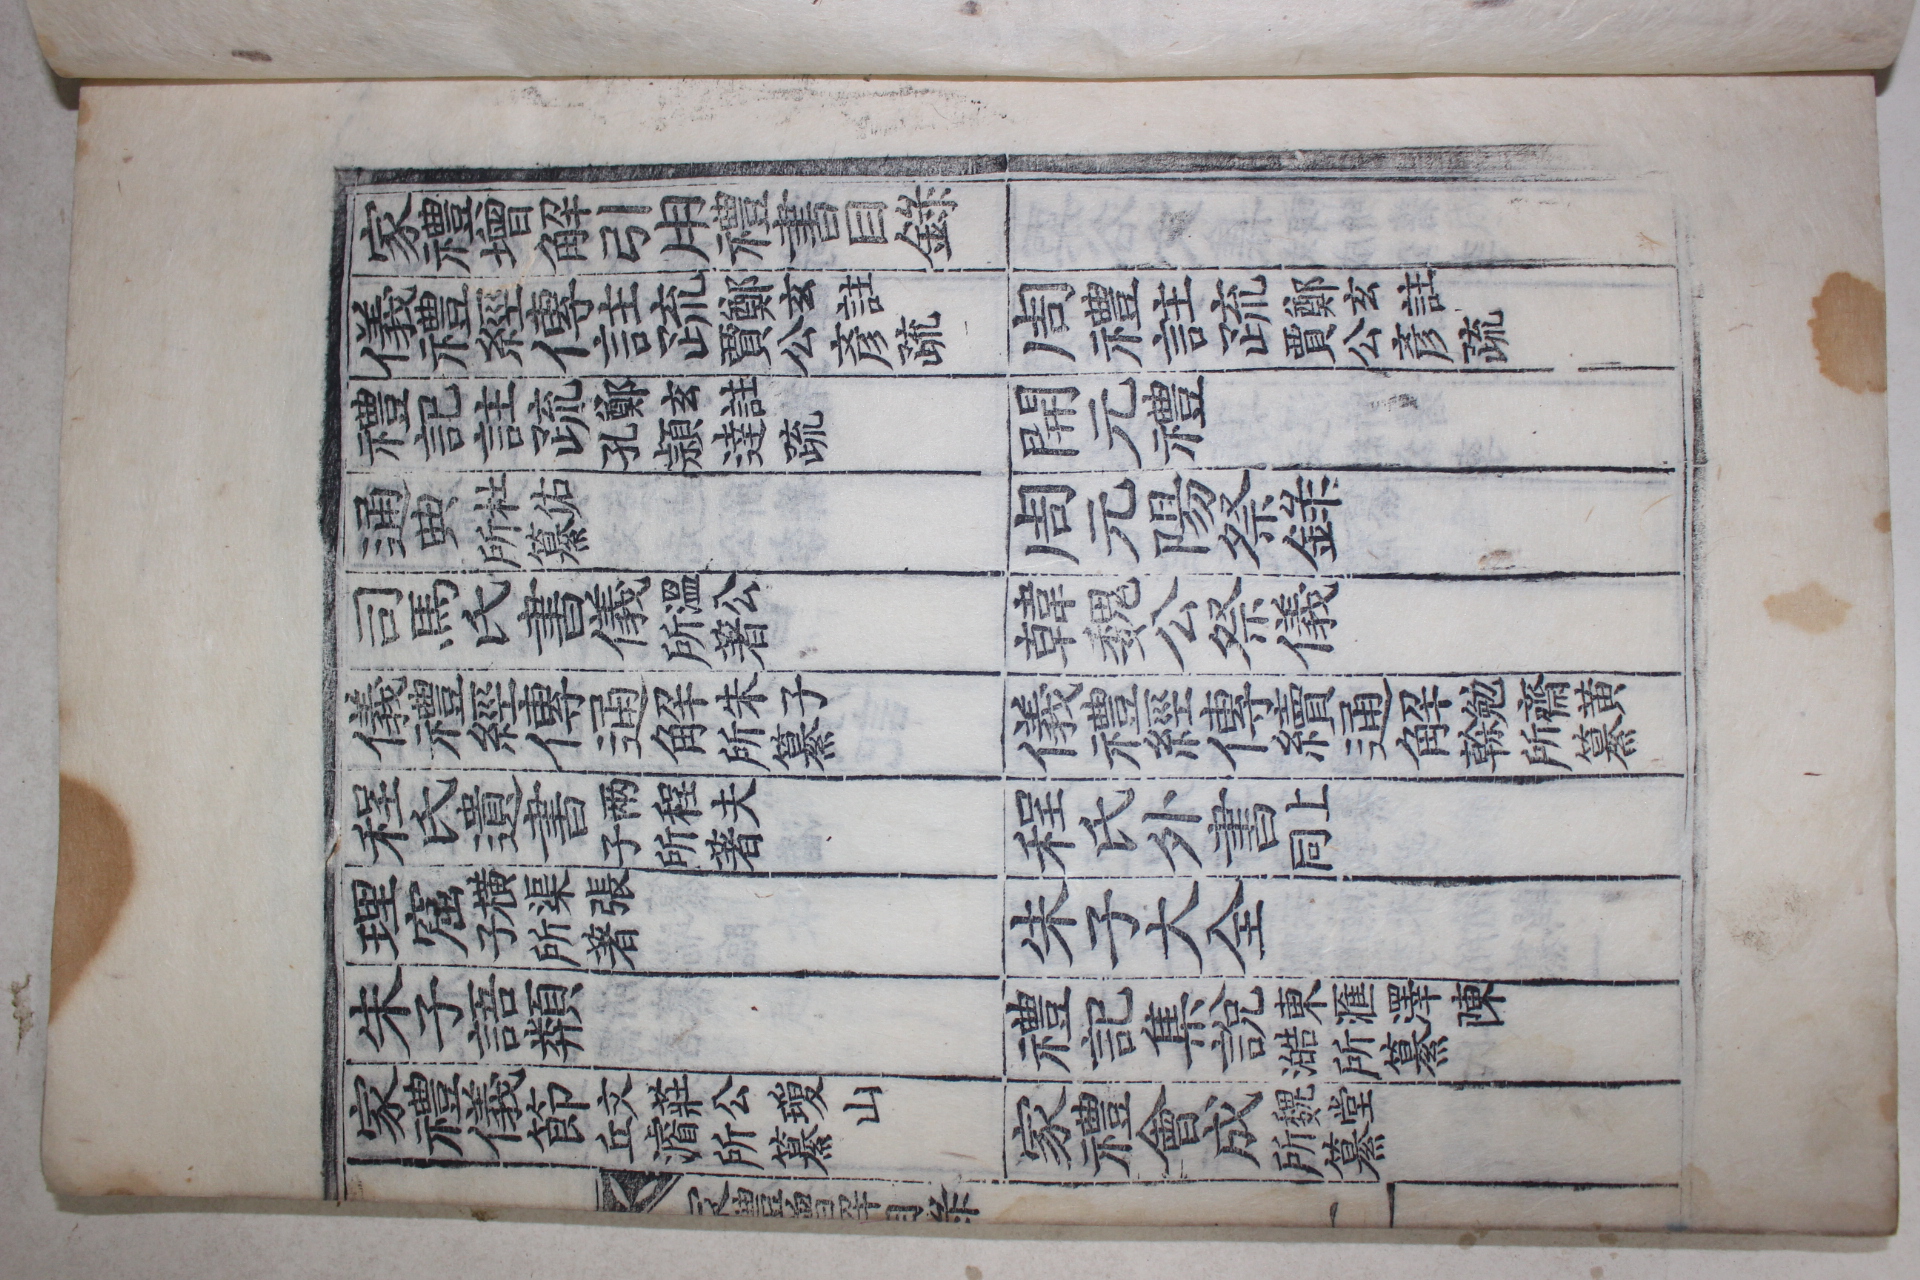 家禮增解引用禮書目錄
儀禮經傳註疏 鄭玄註賈公彦疏 周禮註疏 鄭玄註賈公彦疏
禮記註疏 鄭玄註孔穎達疏 開元禮
通典 杜佑所纂 周元陽祭錄
司馬氏書儀 溫公所著 韓魏公祭儀
儀禮經傳通解 朱子所纂 儀禮經傳續通解 勉齋黄榦所纂
程氏遺書 兩程夫子所著 程氏外書 上同
理窟 橫渠張子所著 朱子大全
朱子語類 禮記集說 東匯澤陳澔所纂
家禮儀節 文莊公瓊山丘濬所纂 家禮會成 魏堂所纂
家禮增解目錄